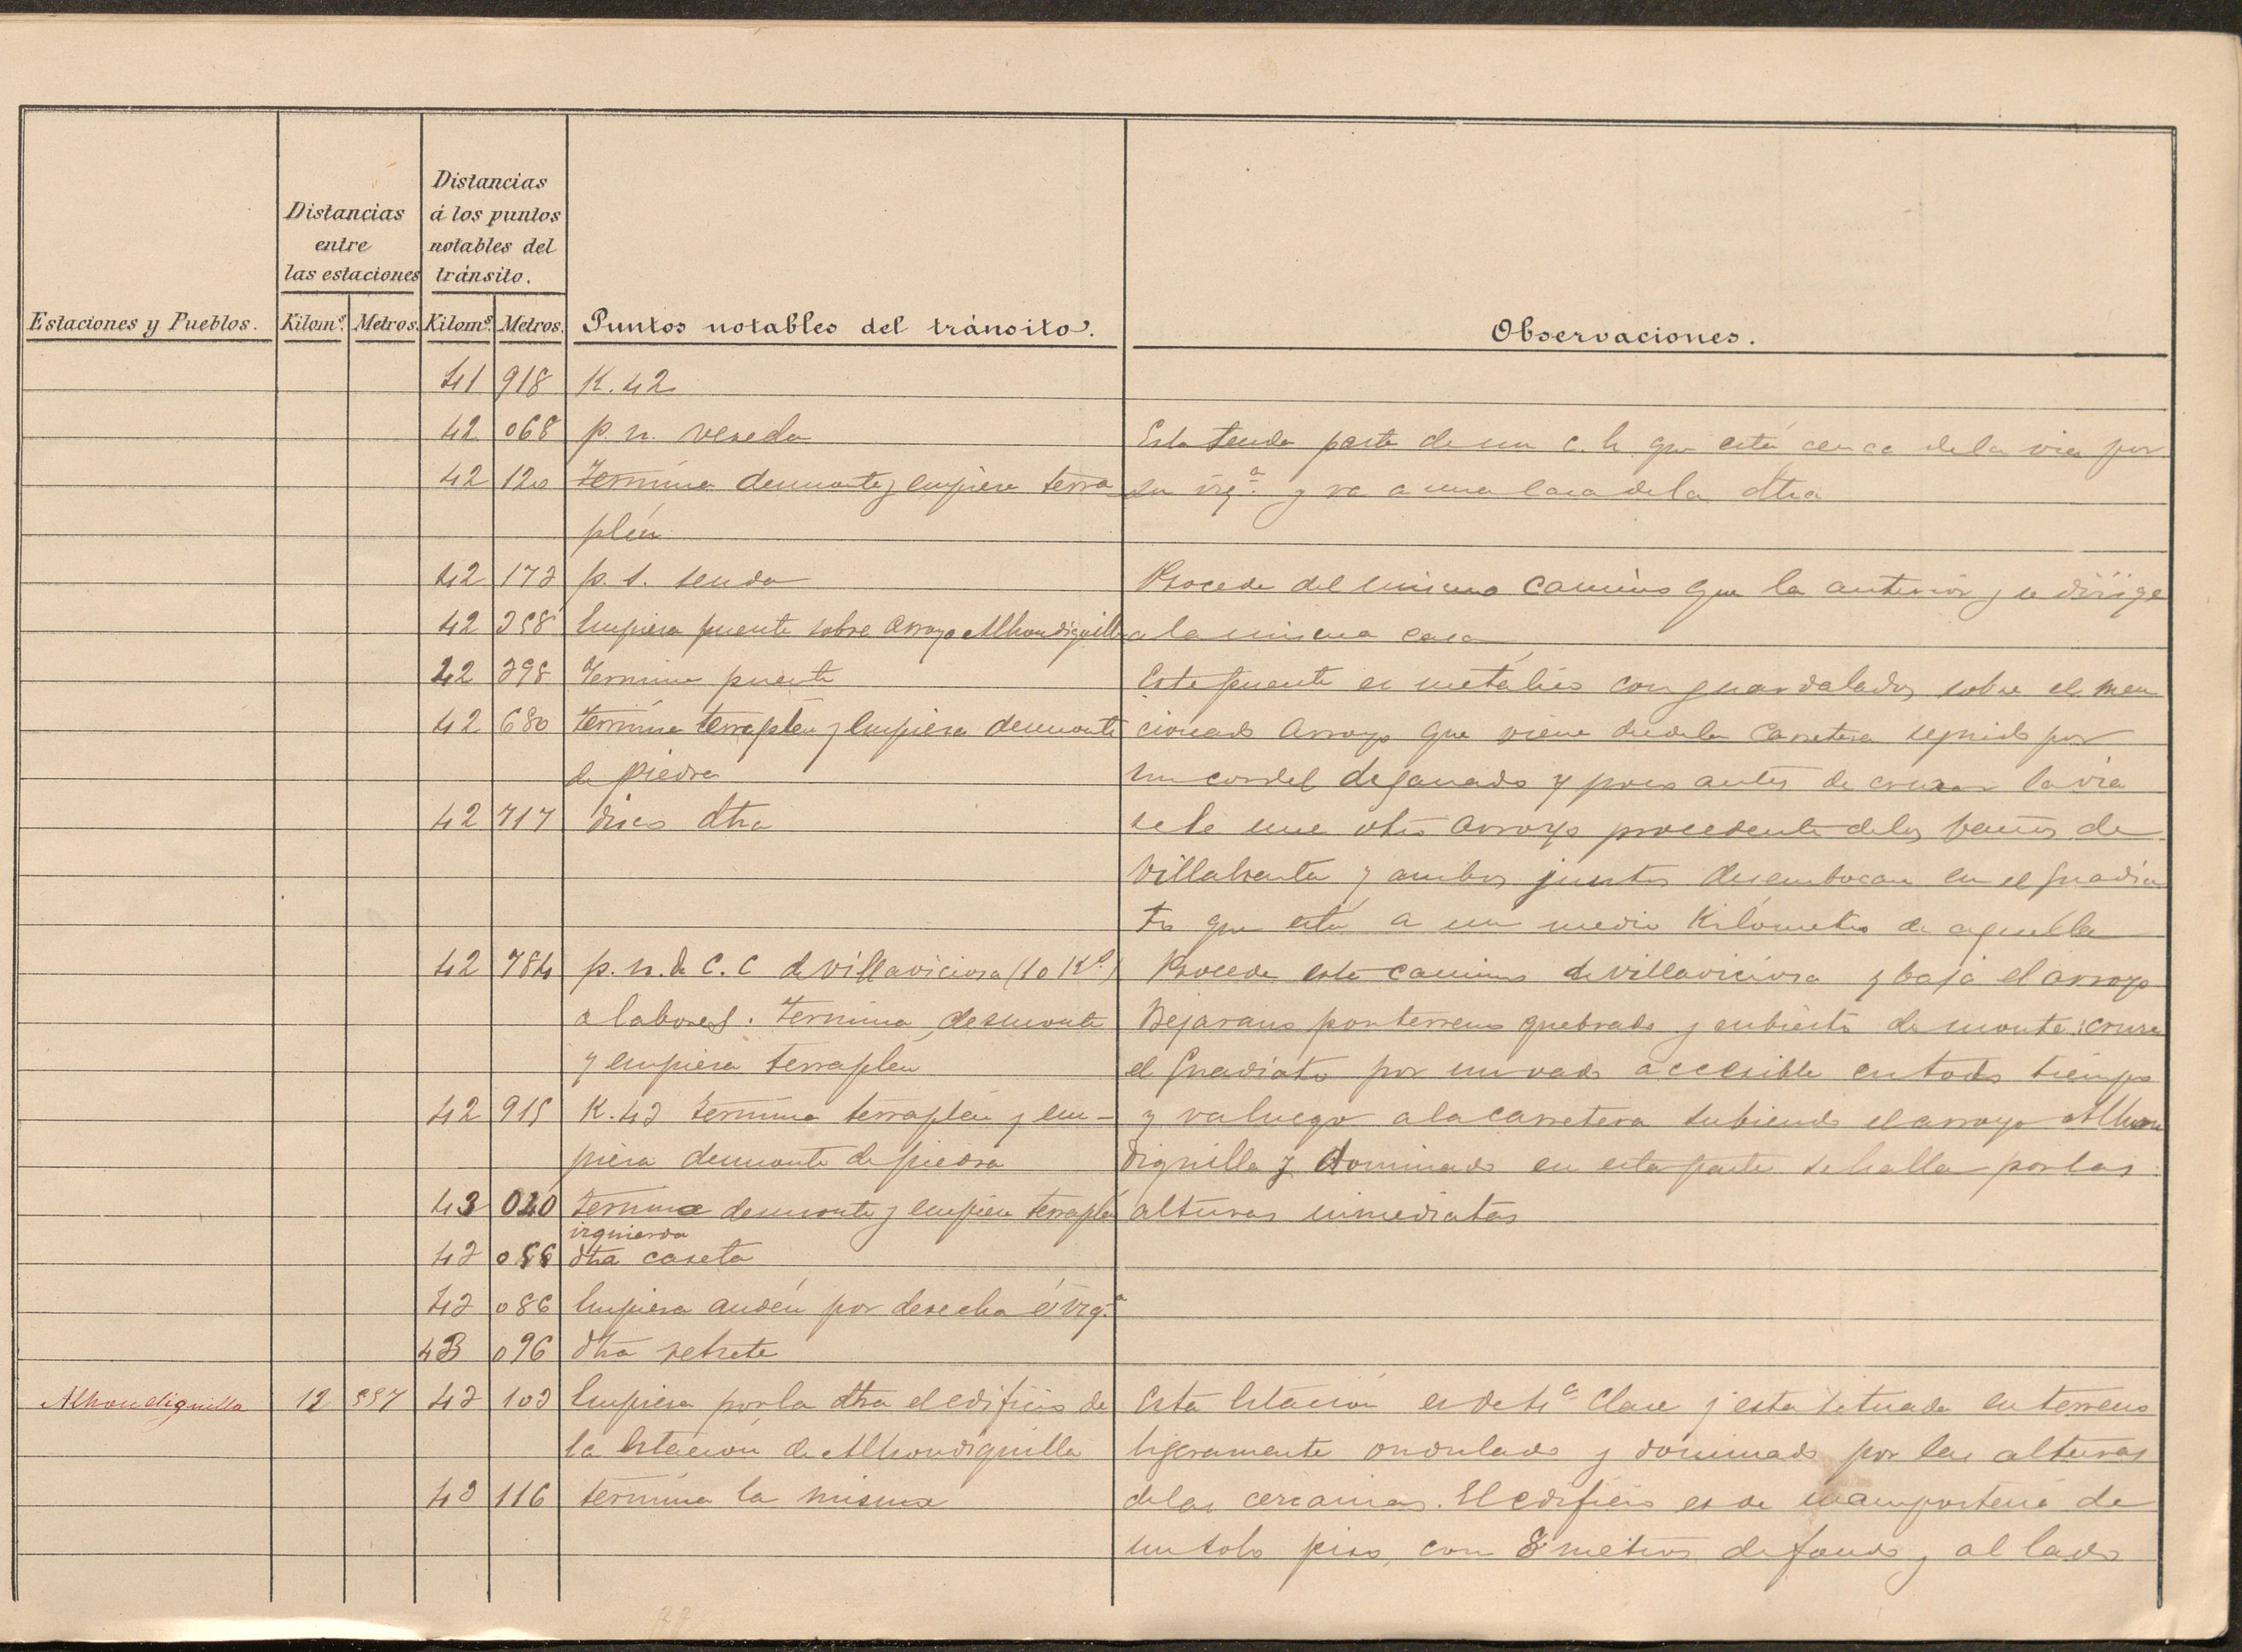 Estaciones y Pueblos. | Distancias entre las estaciones | Distancias á los puntos notables del tránsito. | Puntos notables del tránsito. | Observaciones.
Kilomˢ. | Metros. | Kilomˢ. | Metros.
41 | 918 | K. 42
42 | 068 | p. n. vereda | Esta senda parte de un c. h. que está cerca de la via por
42 | 120 | termina desmonte y empieza terra | su izqª. y va a una casa de la dtra
plén
42 | 173 | p. s. senda | Procede del mismo camino que la anterior y se dirige
42 | 358 | Empieza puente sobre arroyo Alhondiguilla | a la misma casa
42 | 398 | Termina puente | Este puente es metálico con guardalados, sobre el men
42 | 680 | termina terraplen y empieza desmonte | cionado arroyo que viene desde la carretera seguido por
de piedra | un cordel de ganado y poco antes de cruzar la via
42 | 717 | disco dtra | se le une otro arroyo procedente de los baños de
Villaharta y ambos juntos desembocan en el Guadia
to que está a un medio Kilómetro de aquella
42 | 784 | p. n. de C. C de Villaviciosa (10 Kˢ) | Procede este camino de Villaviciosa y baja el arroyo
a labores. termina desmonte | Bejarano por terreno quebrado y cubierto de monte: cruza
y empieza terraplen | el Guadiato por un vado accesible en todo tiempo
42 | 915 | K. 43 termina terraplén y em- | y va luego a la carretera subiendo el arroyo Alhon
pieza desmonte de piedra | diguilla y dominado en esta parte se halla por las
43 | 040 | termina desmonte y empieza terraplén | alturas inmediatas
izquierda
43 | 0 | dtra caseta
43 | 086 | Empieza andén por derecha é izqª
43 | 096 | dtra retrete
Alhondiguilla | 12 | 557 | 43 | 103 | Empieza por la dtra el edificio de | Esta Estación es de 4ª Clase y esta situada en terreno
la Estación de Alhondiguilla | ligeramente ondulado y dominado por las alturas
43 | 116 | termina la misma | de las cercanias. El edificio es de mamposteria de
un solo piso, con 8 metros de fondo y al lado